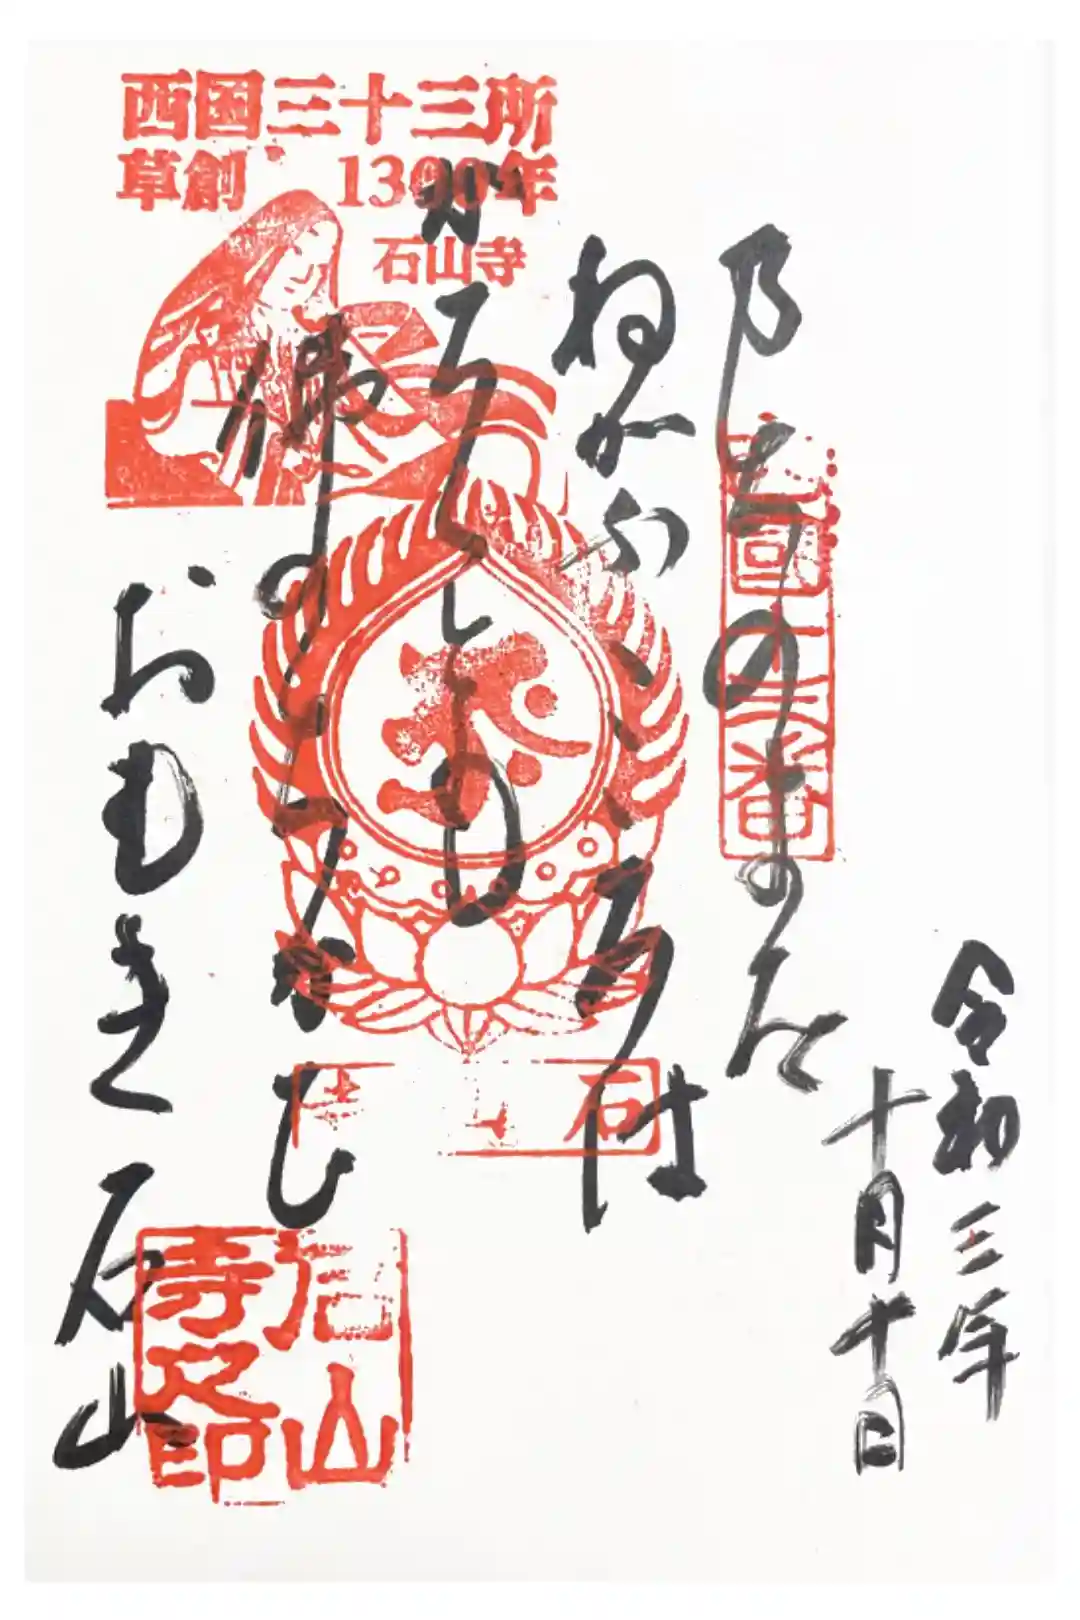 西国三十三所
草創 1300年
石山寺
令和三年
十月十日
西國十三番
乃ちのよを
ねかふこゝろは
かろくとも
佛のちかひ
おもき石山
石山寺之印